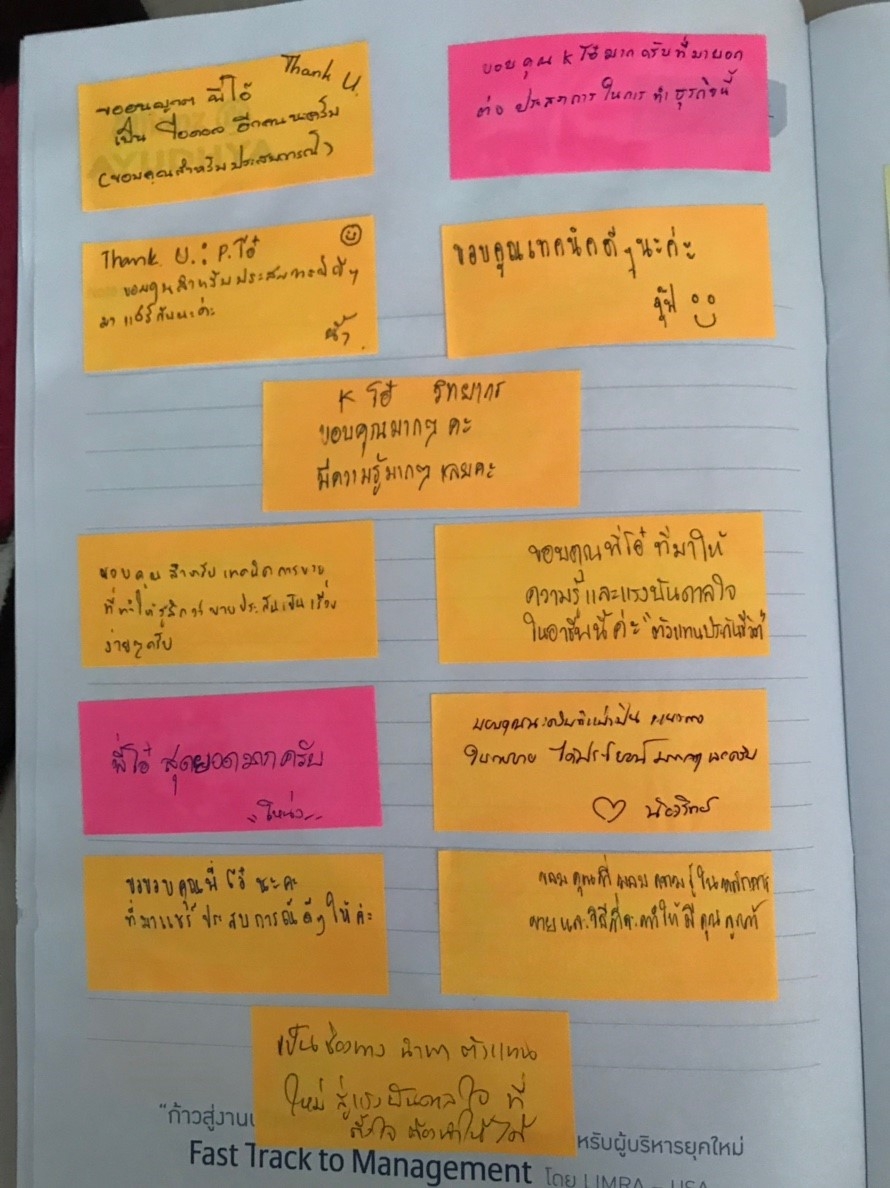 Thank U.
ขออนุญาต พี่โอ๋
เป็น ไอดอล อีกคนนะครับ
(ขอบคุณสำหรับประสบการณ์)
ขอบคุณ K โอ๋มากครับที่มาบอก
ต่อ ประสบการณ์ ในการ ทำธุรกิจนี้
Thank U. : P.โอ๋
ขอบคุณสำหรับประสบการณ์ดีๆ
มาแชร์กันนะค่ะ
น้ำ
ขอบคุณเทคนิคดีๆนะค่ะ
K โอ๋ วิทยากร
ขอบคุณมากๆ คะ
มีความรู้มากๆ เลยคะ
ขอบคุณ สำหรับ เทคนิคการขาย
ที่ทำให้รู้สึกว่าขายประกันเป็นเรื่อง
ง่ายๆครับ
ขอบคุณพี่โอ๋ ที่มาให้
ความรู้และแรงบันดาลใจ
ในอาชีพนี้ค่ะ "ตัวแทนประกันชีวิต"
พี่โอ๋ สุดยอดมากครับ
"โหน่ง"
ขอบคุณนะครับ
ในการขาย ได้ประโยชน์มากๆเลยครับ
ขอขอบคุณพี่ โอ๋ นะคะ
ที่มาแชร์ประสบการณ์ดีๆ ให้ค่ะ
ขอบคุณที่มอบความรู้ในหลักการ
ขายและวิธีที่จะทำให้มีคุณลูกค้า
เป็นช่องทาง นำพา ตัวแทน
ใหม่ สู่แรงบันดาลใจ ที่
ตั้งใจ ต้องทำให้ได้
"ก้าวสู่งาน
หรับผู้บริหารยุคใหม่
Fast Track to Management โดย LIMRA - USA